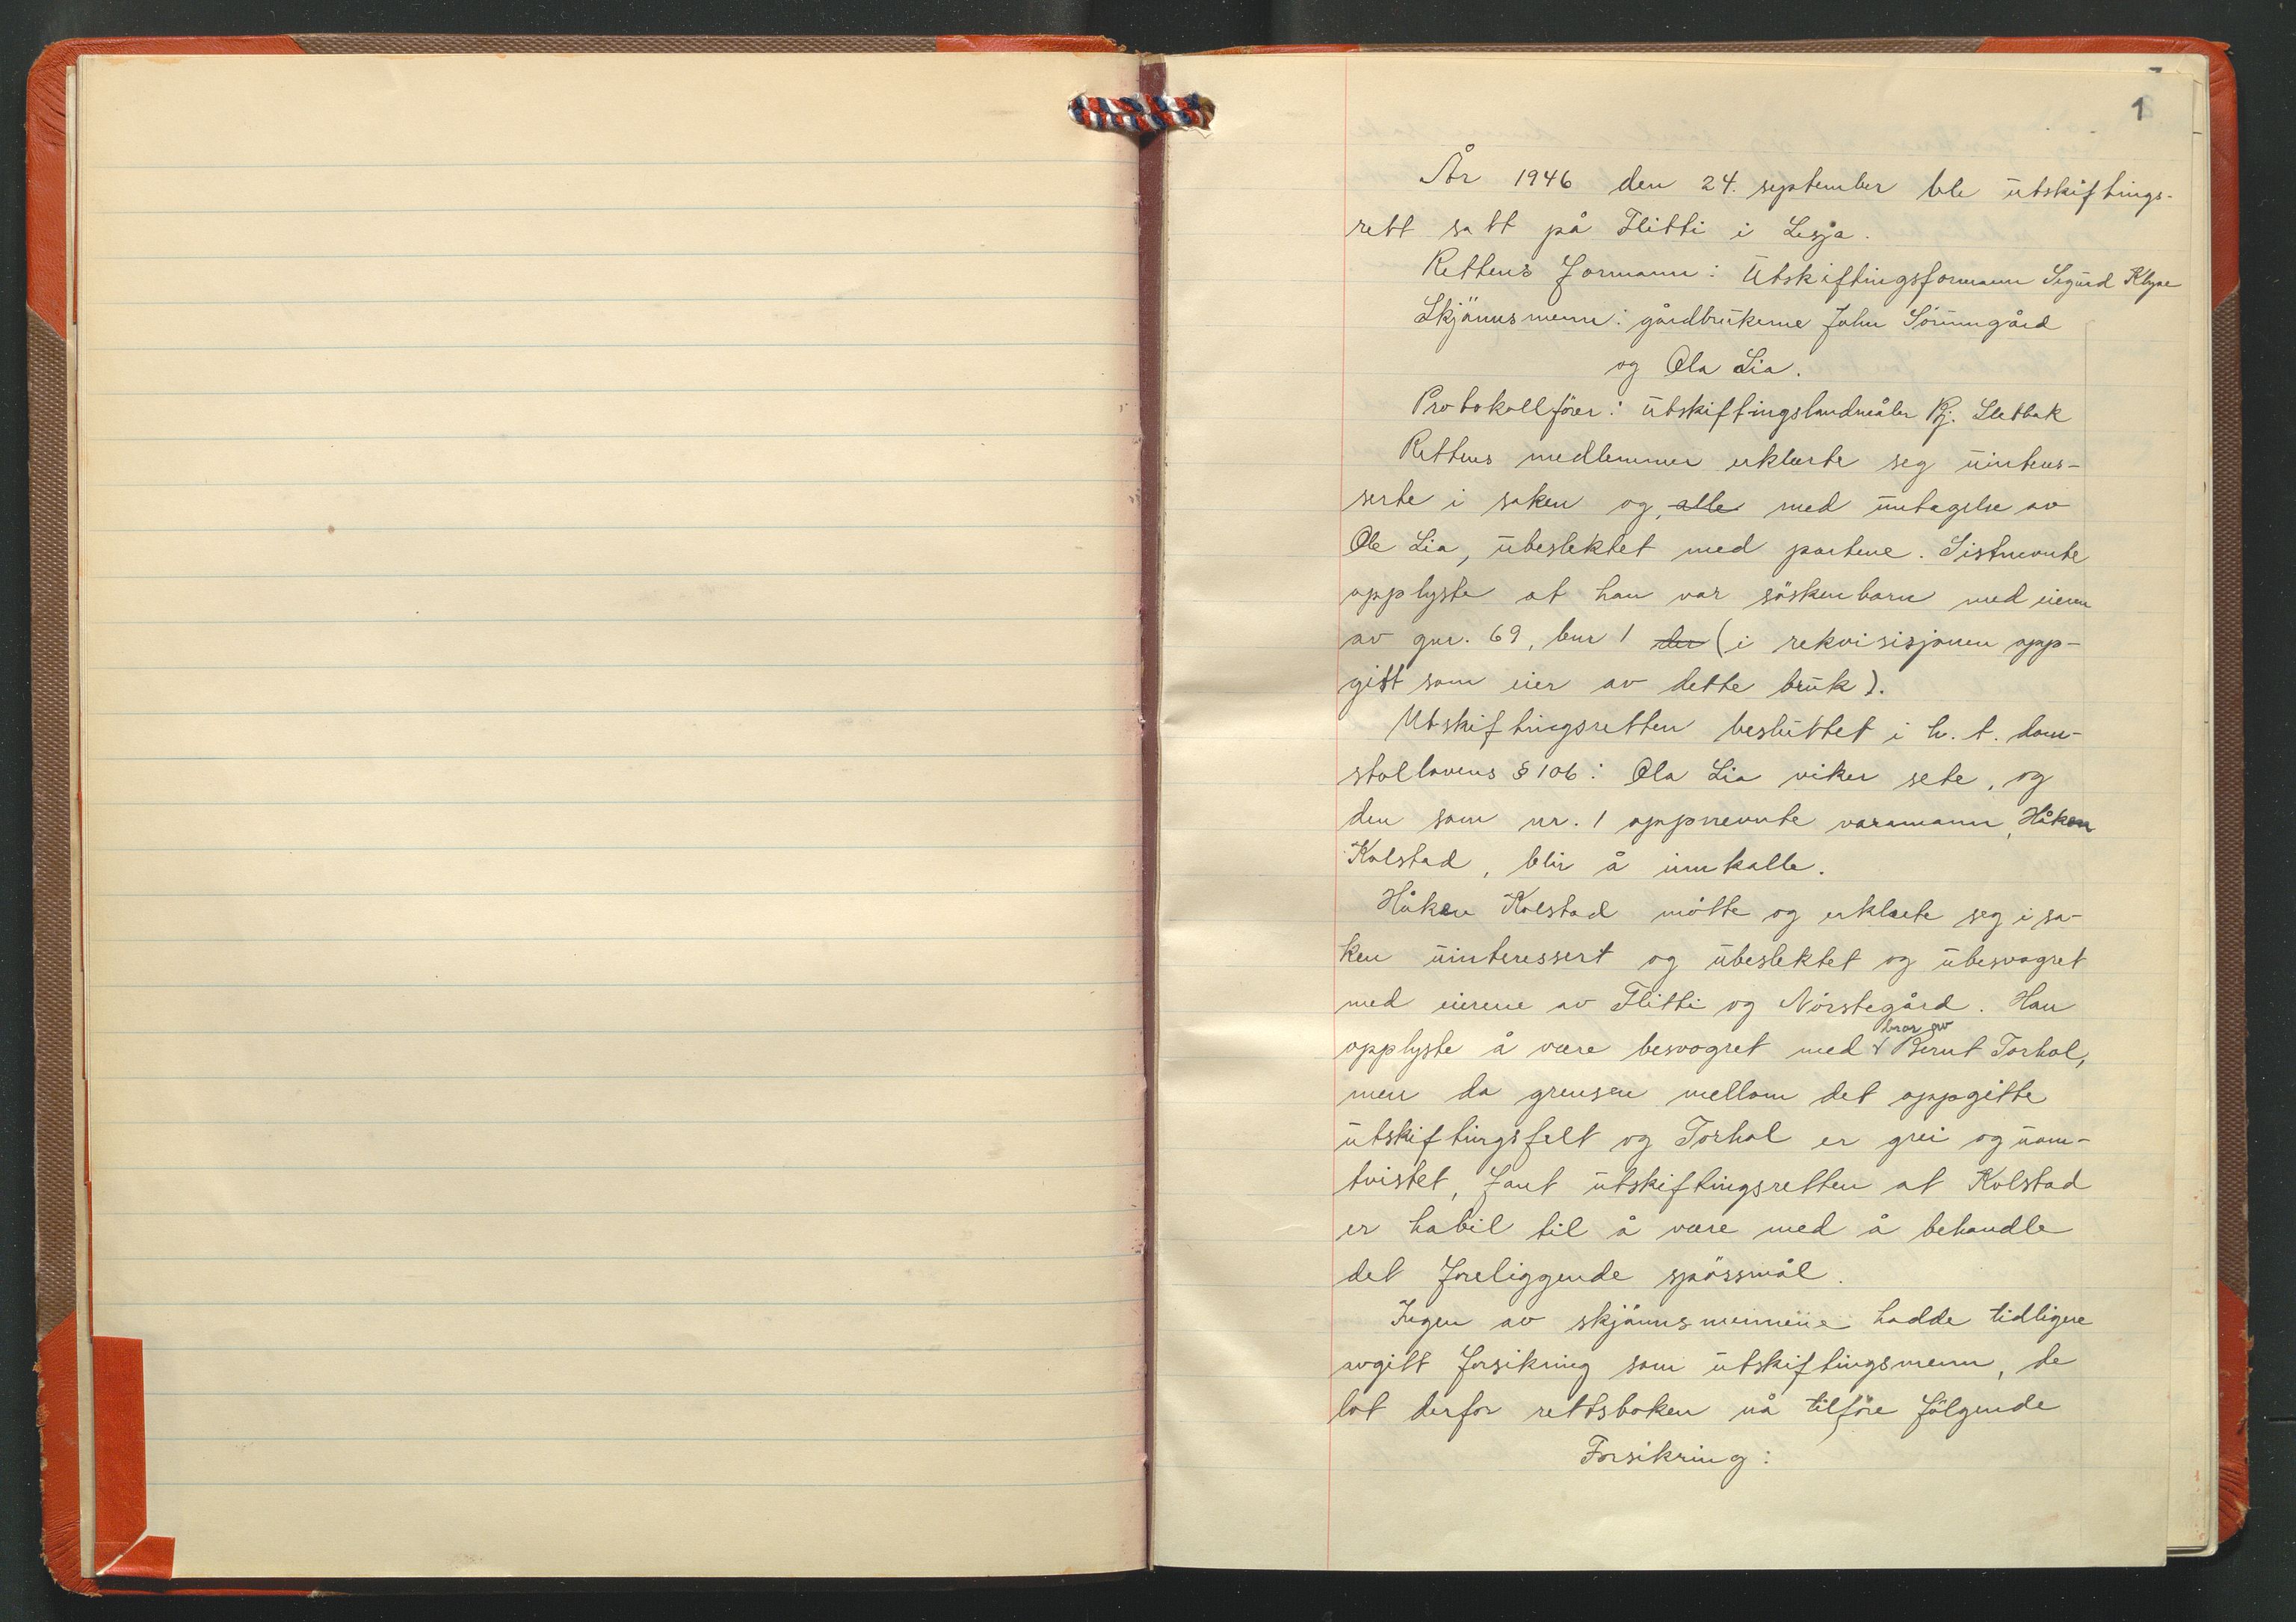 1
År 1946 den 24. september ble utskiftings-
rett satt på Flitti i Lesja.
Rettens formann: Utskiftingsformann Sigurd Klype
Skjönnsmenn: gårdbrukerne John Sörumgård
og Ola Lia.
Protokollförer: utskiftingslandmåler Bj. Sletbak
Rettens medlemmer erklærte seg uinteres-
serte i saken og, alle med untagelse av
Ole Lia, ubeslektet med partene. Sistnevnte
opplyste at han var söskenbarn med eieren
av gnr. 69, bnr 1 der (i rekvisisjonen opp-
gitt som eier av dette bruk).
Utskiftingsretten besluttet i h. t. dom-
stollovens § 106: Ola Lia viker sete, og
den som nr. 1 oppnevnte varamann, Håken
Kolstad, blir å innkalle.
Håken Kolstad mötte og erklærte seg i sa-
ken uinteressert og ubeslektet og ubesvogret
med eierene av Flitti og Nörstegård. Han
opplyste å være besvogret med bror av Bernt Torhol,
men da grensen mellom det oppgitte
utskiftingsfelt og Torhol er grei og uom-
tvistet, fant utskiftingsretten at Kolstad
er habil til å være med å behandle
det foreliggende spörsmål.
Ingen av skjönnsmennene hadde tidligere
avgitt forsikring som utskiftingsmenn, de
lot derfor rettsboken nå tilföre fölgende
Forsikring: